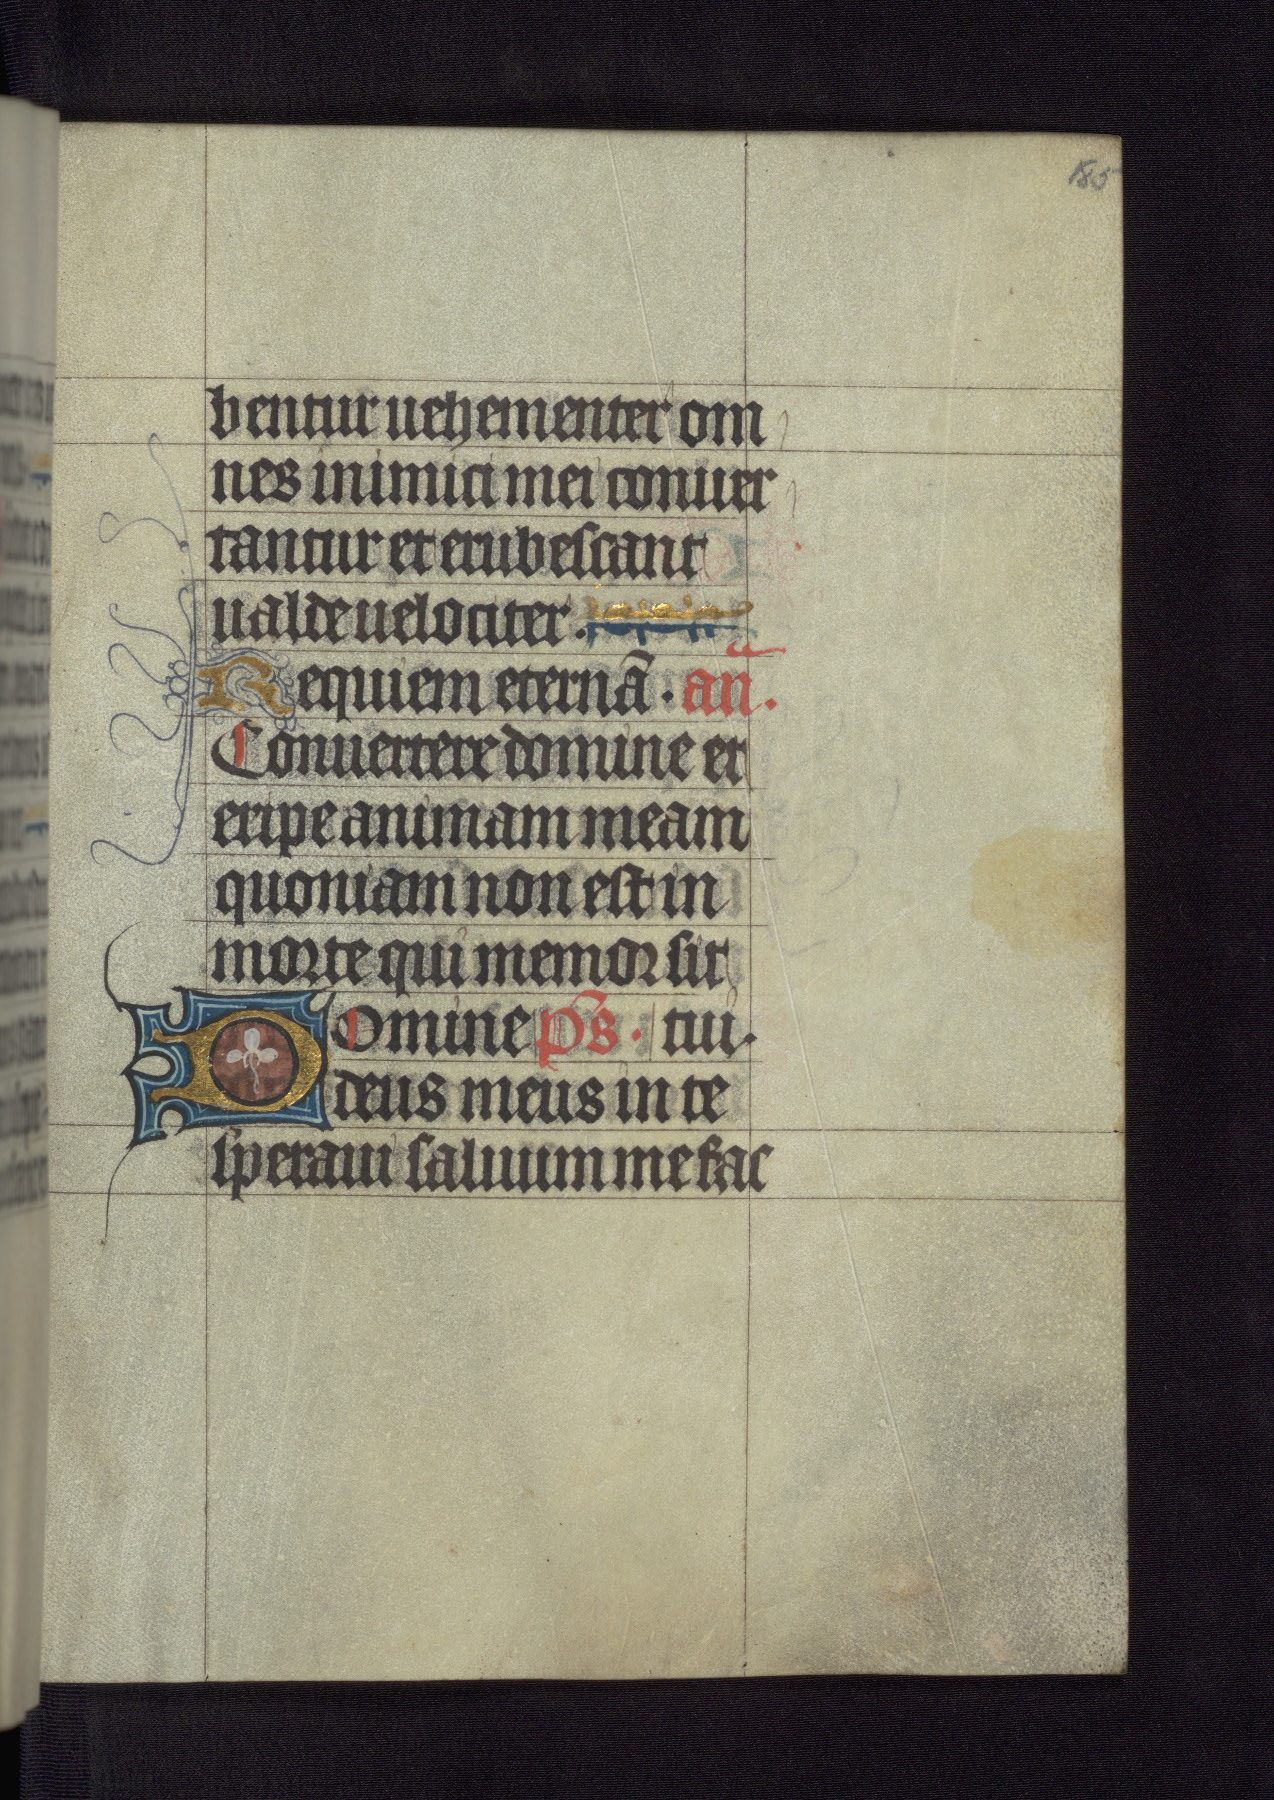 185
bentur uehementer om
nes inimici mei conuer
tantur et erubescant
ualde uelociter.
Requiem eternā. an̄.
Conuertere domine et
eripe animam meam
quoniam non est in
morte qui memor sit
Domine p̄s. tui.
deus meus in te
speraui saluum me fac